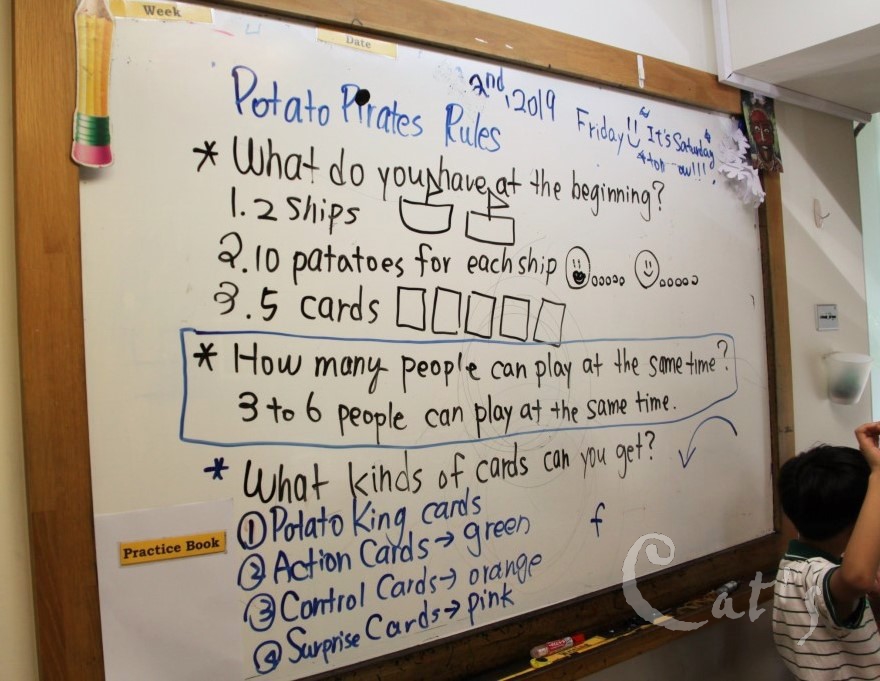 Week
Date
2nd, 2019 Friday
It's Saturday
Potato Pirates Rules
* What do you have at the beginning?
1. 2 ships
2. 10 patatoes for each ship
3. 5 cards
* How many people can play at the same time?
3 to 6 people can play at the same time.
* What kinds of cards can you get?
① Potato King cards
② Action Cards → green
③ Control Cards → orange
④ Surprise Cards → pink
f
Practice Book
Cat's